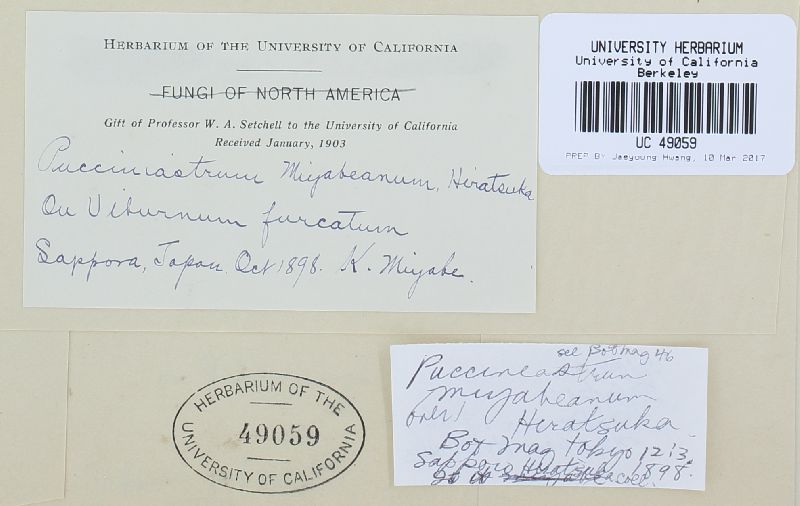 HERBARIUM OF THE UNIVERSITY OF CALIFORNIA
FUNGI OF NORTH AMERICA
Gift of Professor W. A. Setchell to the University of California
Received January, 1903
Pucciniastrum Miyabeanum, Hiratsuka
On Viburnum furcatum
Sappora, Japan. Oct 1898. K. Miyabe.
UNIVERSITY HERBARIUM
University of California
Berkeley
UC 49059
PREP BY Jaeyoung Hwang, 10 Mar 2017
HERBARIUM OF THE
49059
UNIVERSITY OF CALIFORNIA
see Bot Mag 46
Puccineastrum
miyabeanum
Hiratsuka
Bot Mag Tokyo 12:3
Sapporo 1898.
coll.